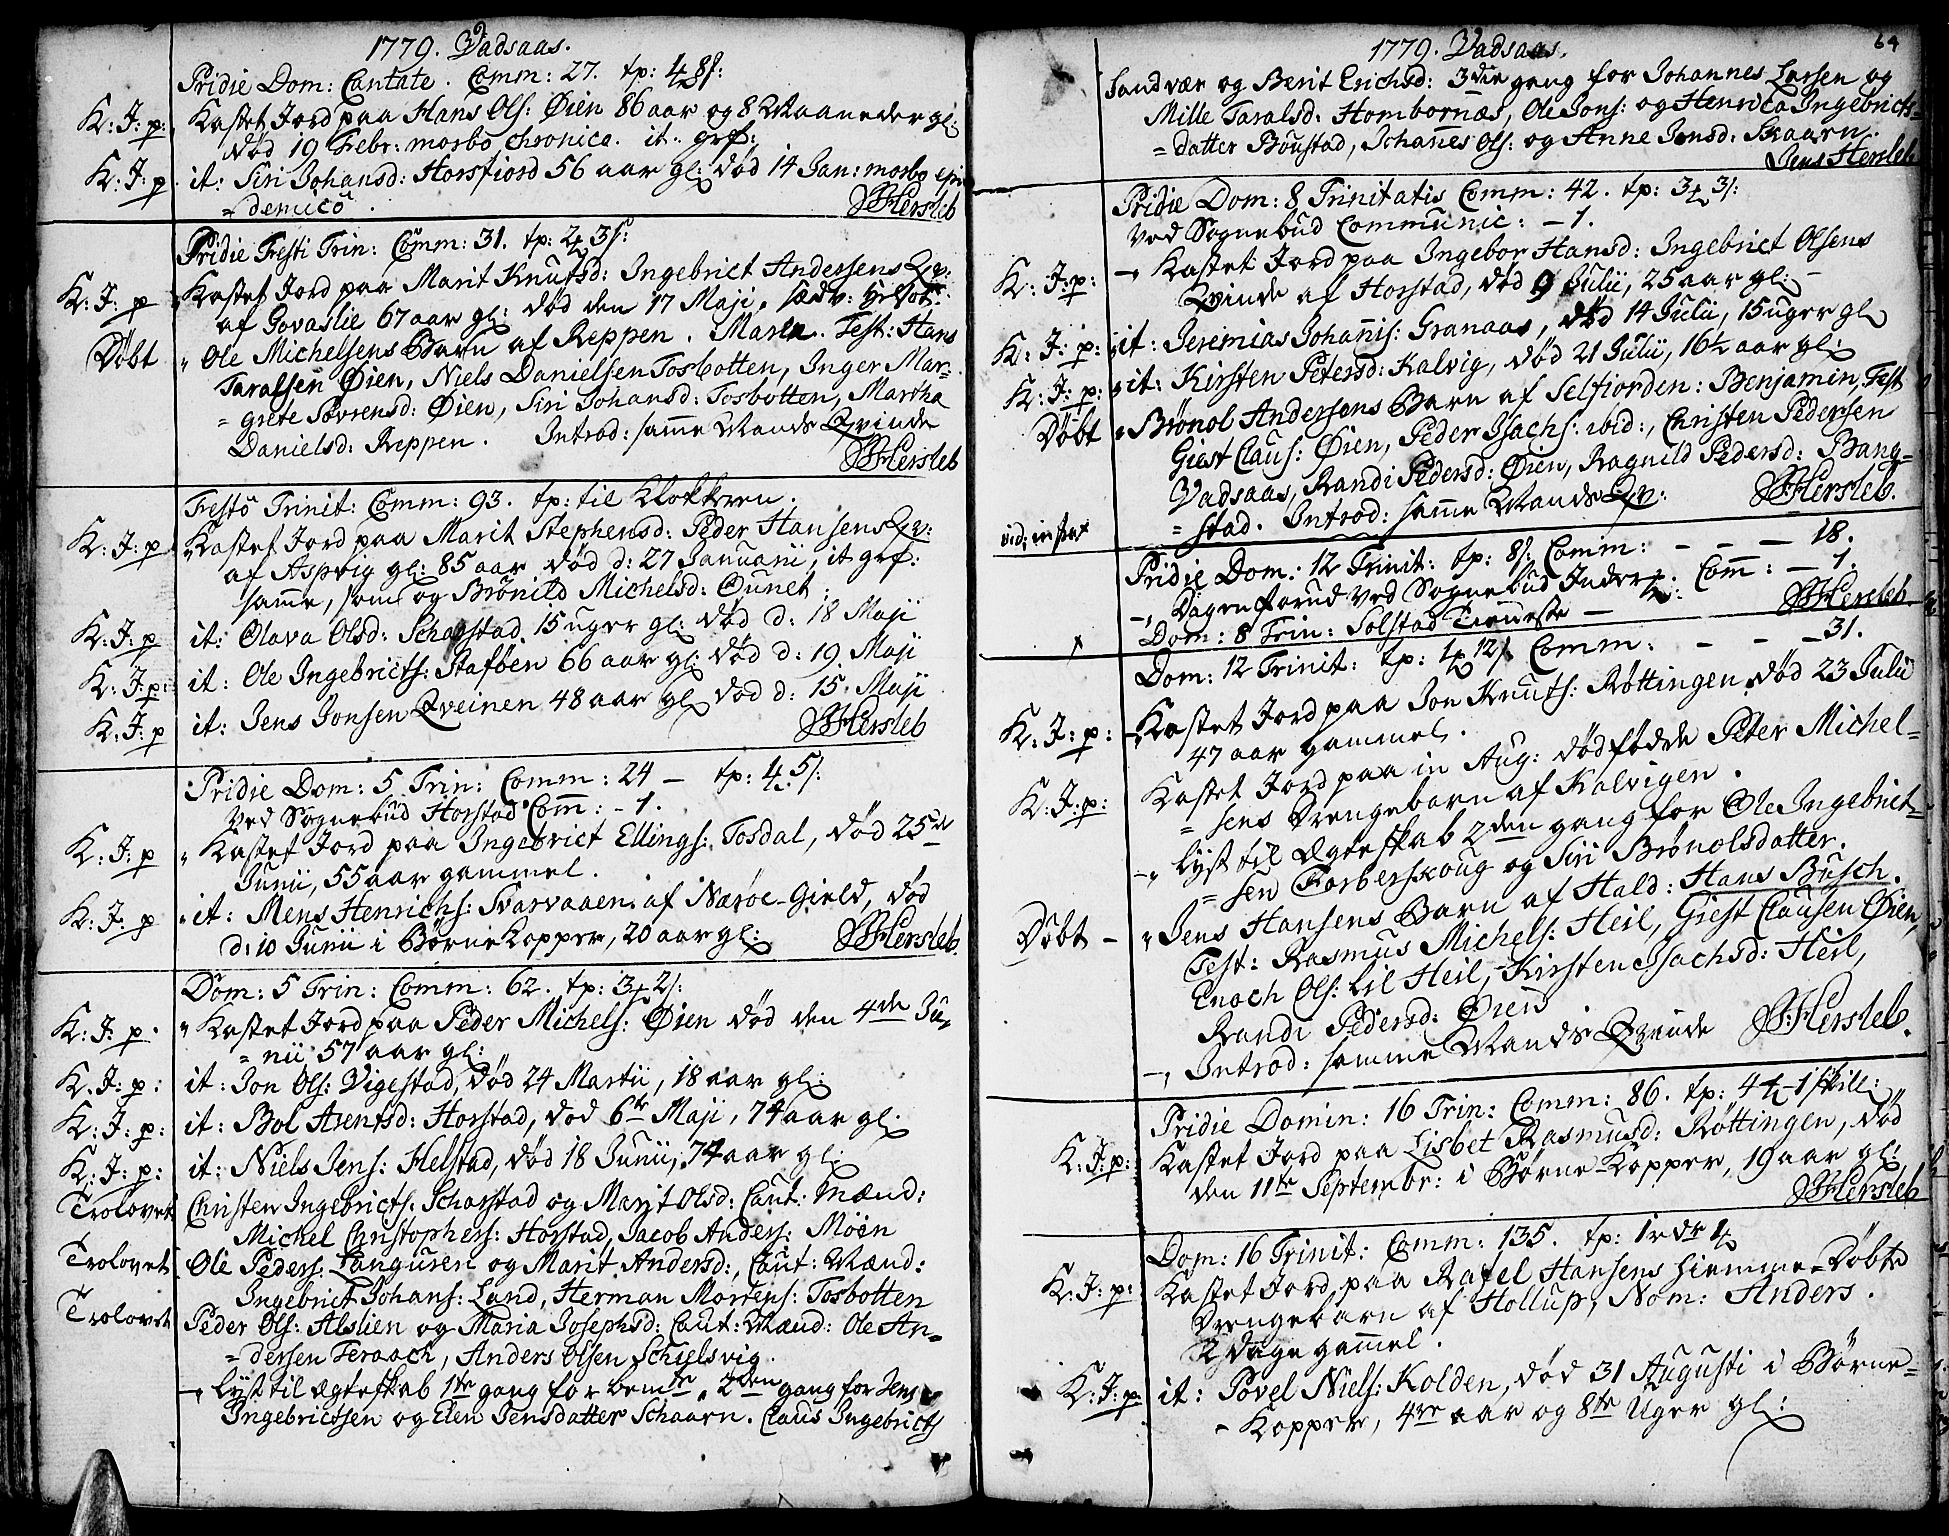 1779. Vadsaas.
Pridie Dom: Cantate. Comm: 27. tp: 4 8 s:
K: J: p: Kastet Jord paa Hans Ols: Øien 86 aar og 8 Maaneder gl:
død 19 Febr: morbo chronica. it. grf:
K: J: p. it: Siri Johansd: Horsfiord 56 aar gl: død 14 Jan: morbo epi
= demicô. JHersleb
Pridie Festi Trin: Comm: 31. tp: 2 3 s:
K: J: p Kastet Jord paa Marit Knutsd: Ingebrict Andersens Qv:
af Govaslie 67 aar gl: død den 17 Maji.
Døbt " Ole Michelsens Barn af Reppen. Maren. Test: Hans
Taralsen Øien, Niels Danielsen Tosbotten, Inger Mar-
= grete Sövrensd: Øien, Siri Johansd: Tosbotten, Martha
Danielsd: Reppen. Introd: samme Mands Qvinde
JHersleb
Festô Trinit: Comm: 93. tp: til Klokkeren.
K: J: p Kastet Jord paa Marit Stephensd: Peder Hansens Qv:
af Aspvig gl: 85 aar død d: 27 Januarii, it grf:
samme, som og Brönild Michelsd: Øunet.
K: J: p it: Olava Olsd: Scharstad. 15 uger gl: død d: 18 Maji
K: J: p: it: Ole Ingebricts: Staföen 66 aar gl: død d: 19. Maji
K: J: p it: Jens Jonsen Qveinen 48 aar gl død d: 15. Maji
JHersleb
Pridie Dom: 5 Trin: Comm: 24 — tp: 4 5 s:
Ved Sognebud Horstad Com: - 1.
K: J: p " Kastet Jord paa Ingebrict Ellings: Tosdal, død 25de
Junii, 55 aar gammel.
K: J: p " it: Mens Henrichs: Svarvaaen af Nærøe-Gield, død
d: 10 Junii i BørneKopper, 20 aar gl: JHersleb.
Dom: 5 Trin: Comm: 62. tp: 3 2 s:
K: J: p. " Kastet Jord paa Peder Michels: Øien død den 4de Ju-
= nii 57 aar gl:
K: J: p: it: Jon Ols: Vigestad, død 24 Martii, 18 aar gl:
K: J: p: it: Bol Arentsd: Horstad, død 6te Maji, 74 aar gl.
K: J: p: it: Niels Jens: Helstad, død 18 Junii, 74 aar gl:
Trolovet Christen Ingebricts. Scharstad og Marit Olsd: Caut: Mænd:
Michel Christophers: Horstad, Jacob Anders: Möen
Trolovet Ole Peders: Langüren og Marit Andersd:, Caut: Mænd:
Ingebrict Johans: Lund, Herman Mortens: Tosbotten
Trolovet Peder Ols: Alslien og Maria Josephsd: Caut: Mænd: Ole An-
= dersen Teraack, Anders Olsen Schielsvig.
—, Lyst til Ægteskab 1te gang for bemte, 2den gang for Jens
Ingebrictsen og Elen Jensdatter Schaarn. Claus Ingebricts
1779. Vadsaas. 64
Sandvær og Berit Erichsd: 3die gang for Johannes Larsen og
Mille Taralsd: Hombornæs, Ole Jons: og Henrica Ingebricts-
= datter Böustad, Johannes Ols: og Anne Jonsd: Skaarn.
Jens Hersleb
Pridie Dom: 8 Trinitatis Comm: 42. tp: 3 3 s:
Ved Sognebud Communic: — 1.
K: J: p: —, Kastet Jord paa Ingebor Hansd: Ingebrict Olsens
Qvinde af Horstad, død 9 Julii, 25 aar gl: —
K: J: p: it: Jeremias Johannis: Granaas, død 14 Julii, 15 uger gl
K: J: p: it: Kirsten Petersd: Kalvig, død 21 Julii, 16½ aar gl:
Døbt " Brönol Andersens Barn af Selfiorden: Benjamin, Test
Giest Claus: Øien, Peder Isachs: ibid:, Christen Pedersen
Vadsaas, Randi Pedersd: Øien, Ragnild Pedersd: Bang-
= stad. Introd: samme Mands Qv: JHersleb.
vid: infra
Pridie Dom: 12 Trinit: tp: 8 s: Comm: — — — 18.
—, Dagen forud ved Sognebud Com: — 1.
JHersleb
Dom: 8 Trin: Solstad Tieneste —
Dom: 12 Trinit: tp: 1 12 s Comm: — — — 31.
K: J: p: —, Kastet Jord paa Jon Knuts: Røttingen død 23 Julii
47 aar gammel.
K: J: p: Kastet Jord paa in Aug: dødfødde Peter Michel-
= sens Drengebarn af Kalvigen.
—, Lyst til Ægteskab 2den gang for Ole Ingebrict-
= sen Torberskoug og Siri Brönolsdatter.
Døbt — " Jens Hansens Barn af Hald: Hans Busch.
Test: Rasmus Michels: Heil, Giest Clausen Øien,
Enoch Ols: Lil Heil, Kirsten Isachsd: Heil,
Randi Pedersd: Øien
—, Introd: samme Mands Qvinde JHersleb.
Pridie Domin: 16 Trin: Comm: 86. tp: 4 - 1 skill:
K: J: p: Kastet Jord paa Lisbet Rasmusd: Røttingen, død
den 11te Septembr: i Børne-Kopper, 19 aar gl:
JHersleb
Dom: 16 Trinit: Comm: 135. tp: 1 rdr 1
K: J: p: Kastet Jord paa Rafel Hansens hiemme-Døbte
Drengebarn af Hollup, Nom: Anders.
2 Dage gammel.
K: J: p. it: Povel Niels: Kolden, død 31 Augusti i Børne-
- Kopper, 4re aar og 8te Uger gl: